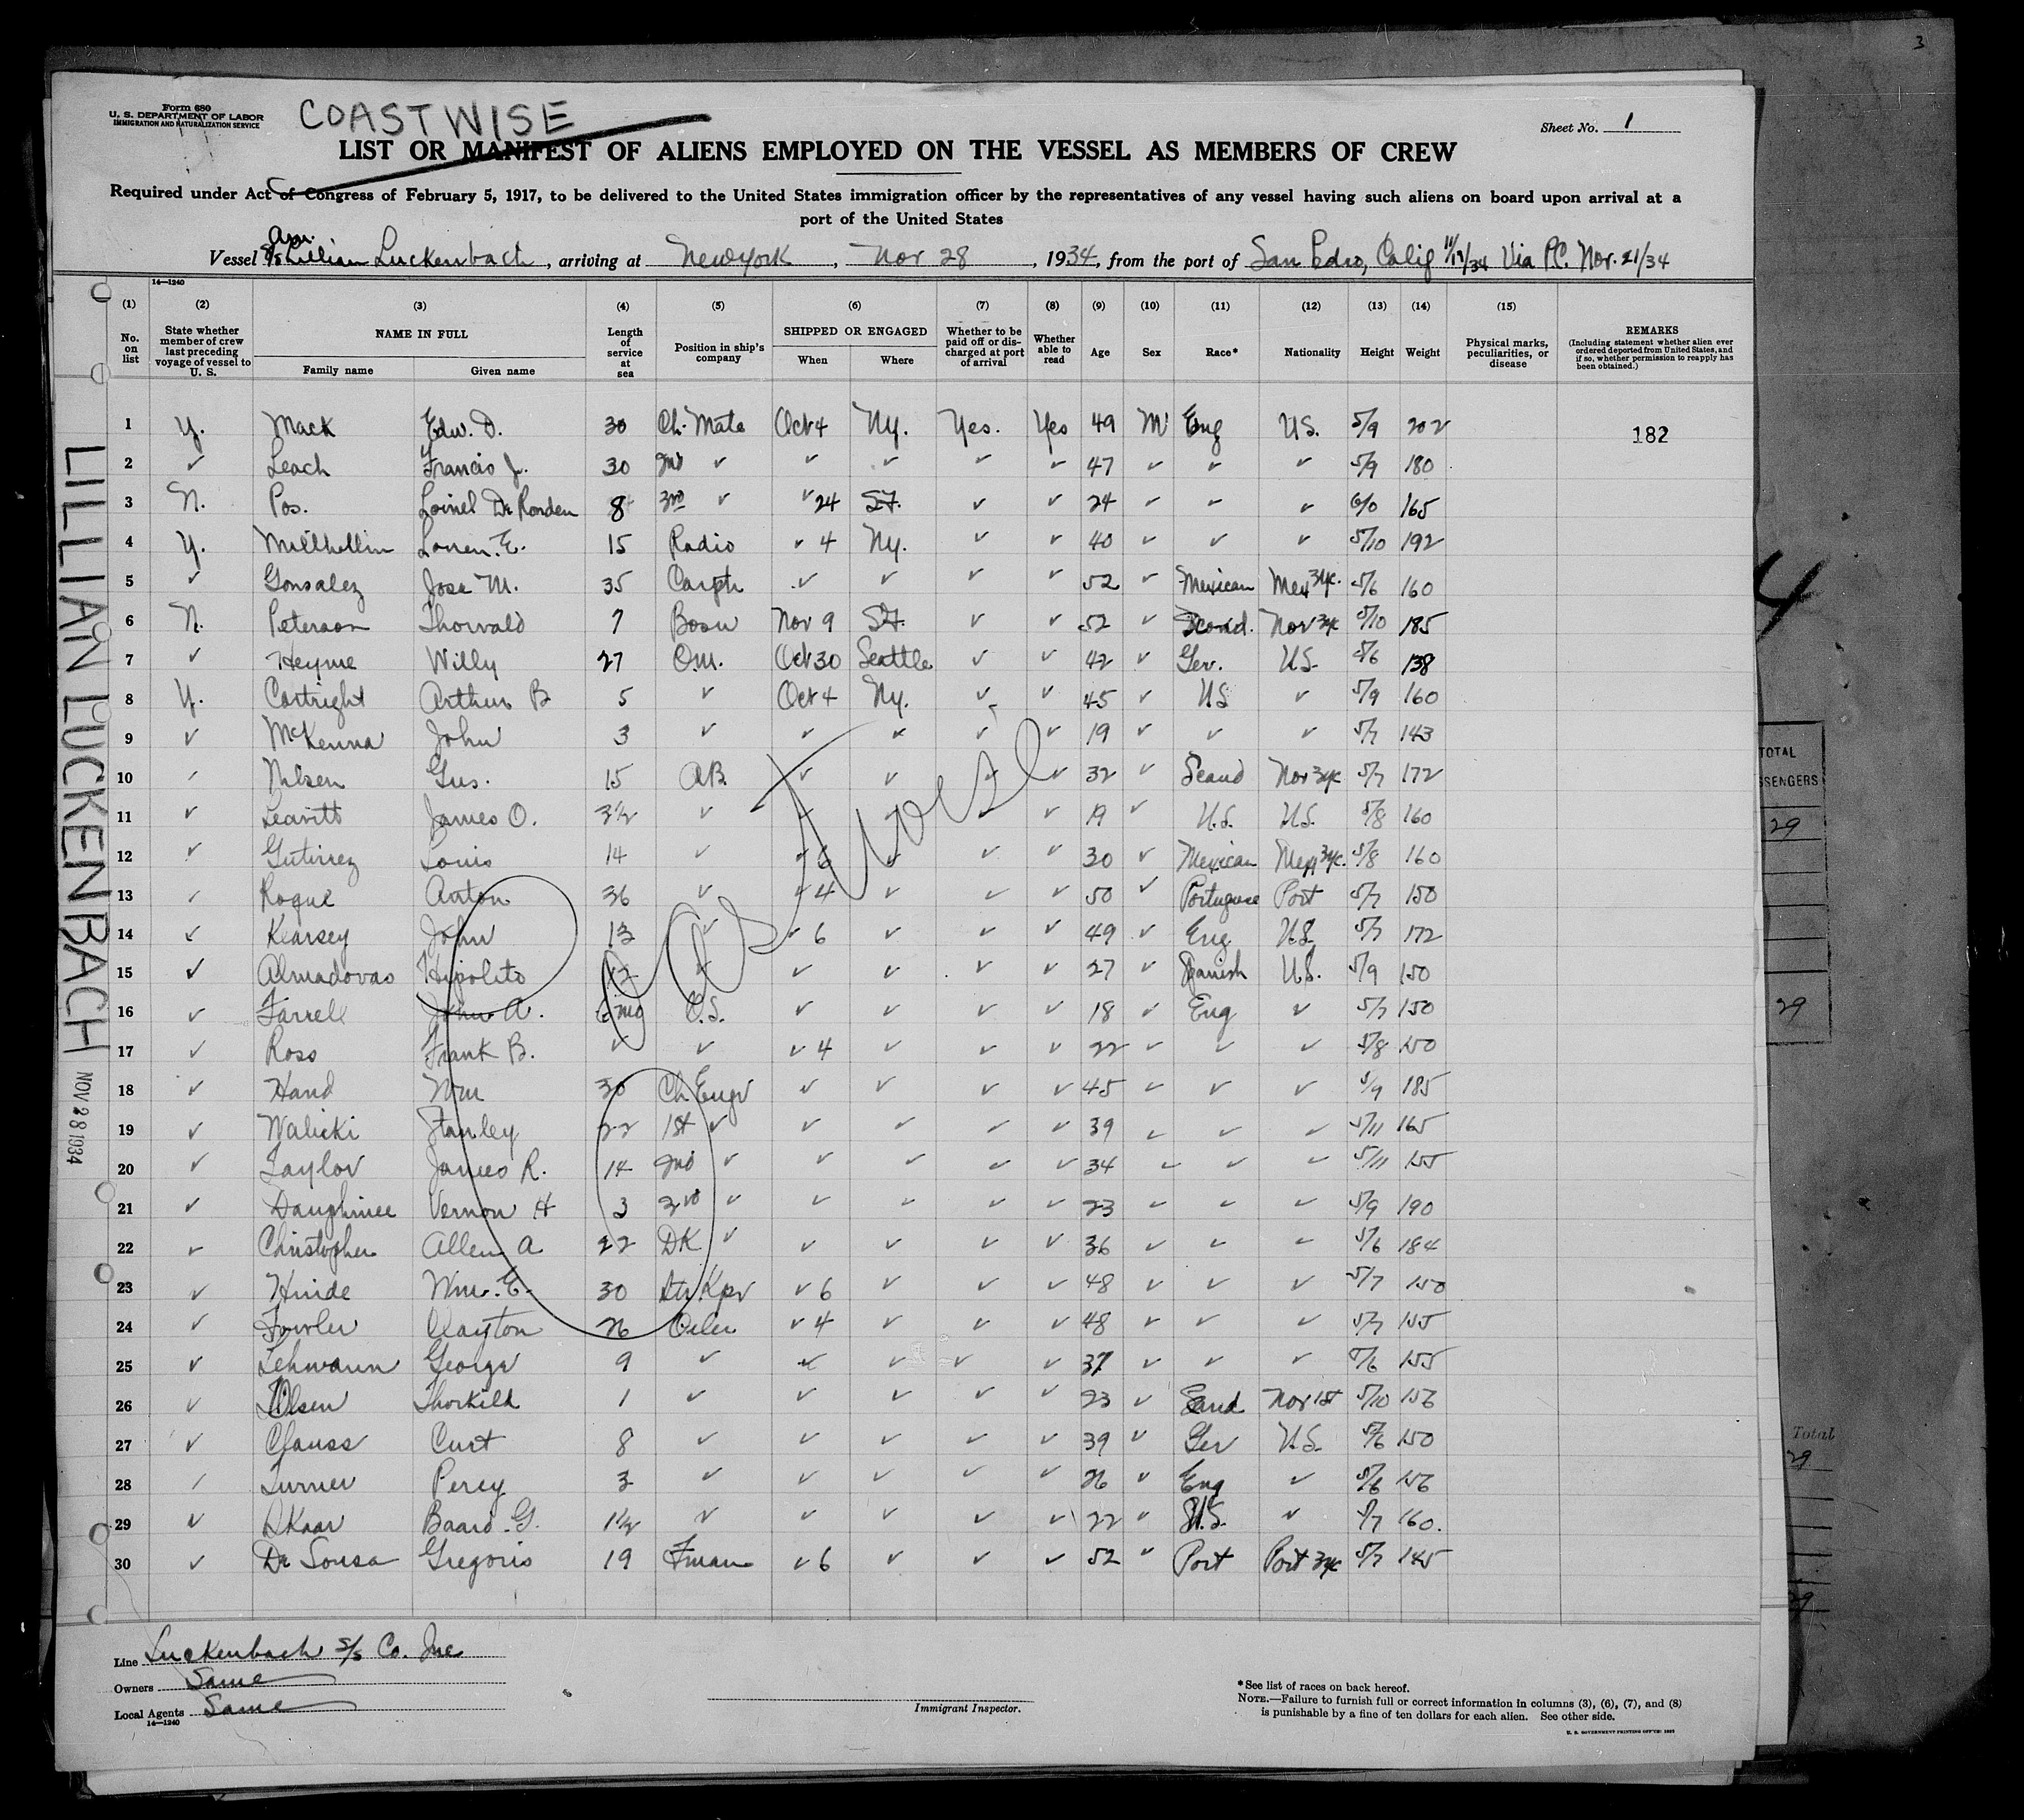 3
Form 680
U. S. DEPARTMENT OF LABOR
IMMIGRATION AND NATURALIZATION SERVICE
COASTWISE
Sheet No. 1
LIST OR MANIFEST OF ALIENS EMPLOYED ON THE VESSEL AS MEMBERS OF CREW
Required under Act of Congress of February 5, 1917, to be delivered to the United States immigration officer by the representatives of any vessel having such aliens on board upon arrival at a
port of the United States
Am.
Vessel S/S Lillian Luckenbach, arriving at New York, Nov 28, 1934, from the port of San Pedro, Calif 11/17/34 Via P.C. Nov. 21/34
14—1240
(1) (2) (3) (4) (5) (6) (7) (8) (9) (10) (11) (12) (13) (14) (15)
No. on list
State whether member of crew last preceding voyage of vessel to U. S.
NAME IN FULL
Family name
Given name
Length of service at sea
Position in ship's company
SHIPPED OR ENGAGED
When
Where
Whether to be paid off or discharged at port of arrival
Whether able to read
Age
Sex
Race*
Nationality
Height
Weight
Physical marks, peculiarities, or disease
REMARKS
(Including statement whether alien ever ordered deported from United States, and if so, whether permission to reapply has been obtained.)
1 Y. Mack Edw. D. 30 Ch. Mate Oct 4 Ny. Yes. Yes 49 M Eng US. 5/9 202
182
2 ✓ Leach Francis J. 30 2nd ✓ ✓ ✓ ✓ ✓ 47 ✓ ✓ ✓ 5/9 180
3 N. Pos. Loinel De Ronden 8 3rd ✓ ✓ 24 SF. ✓ ✓ 24 ✓ ✓ ✓ 6/0 165
4 Y. Millhollin Loren. E. 15 Radio ✓ 4 Ny. ✓ ✓ 40 ✓ ✓ ✓ 5/10 192
5 ✓ Gonsalez Jose M. 35 Carptr ✓ ✓ ✓ ✓ 52 ✓ Mexican Mex 5/6 160
6 N. Peterson Thorvald 7 Bosn Nov 9 SF. ✓ ✓ 52 ✓ Scand. Nor 5/10 185
7 ✓ Heyme Willy 27 Q.M. Oct 30 Seattle ✓ ✓ 42 ✓ Ger. U.S. 5/6 138
8 Y. Cartright Arthur B 5 ✓ Oct 4 Ny. ✓ ✓ 45 ✓ US ✓ 5/9 160
9 ✓ McKenna John 3 ✓ ✓ ✓ ✓ ✓ 19 ✓ ✓ ✓ 5/7 143
10 ✓ Nilsen Gus. 15 AB. ✓ ✓ ✓ ✓ 32 ✓ Scand Nor 5/7 172
11 ✓ Leavitt James O. 3½ ✓ ✓ ✓ ✓ ✓ 19 ✓ U.S. U.S. 5/8 160
12 ✓ Gutirrez Louis 14 ✓ ✓ 6 ✓ ✓ ✓ 30 ✓ Mexican Mex 5/8 160
13 ✓ Roque Anton 36 ✓ ✓ 4 ✓ ✓ ✓ 50 ✓ Portuguese Port 5/7 150
14 ✓ Kearsey John 13 ✓ ✓ 6 ✓ ✓ ✓ 49 ✓ Eng U.S. 5/7 172
15 ✓ Almadovas Hipolito 12 ✓ ✓ ✓ ✓ ✓ 27 ✓ Spanish U.S. 5/9 150
16 ✓ Farrell John A. 6 mo O.S. ✓ ✓ ✓ ✓ 18 ✓ Eng ✓ 5/7 150
17 ✓ Ross Frank B. ✓ ✓ ✓ 4 ✓ ✓ ✓ 22 ✓ ✓ ✓ 5/8 150
18 ✓ Hand Wm 30 Ch Engr ✓ ✓ ✓ ✓ 45 ✓ ✓ ✓ 5/9 185
19 ✓ Walicki Stanley 22 1st ✓ ✓ ✓ ✓ ✓ 39 ✓ ✓ ✓ 5/11 165
20 ✓ Taylor James R. 14 2nd ✓ ✓ ✓ ✓ ✓ 34 ✓ ✓ ✓ 5/11 155
21 ✓ Dauphinee Vernon H 3 3rd ✓ ✓ ✓ ✓ ✓ 23 ✓ ✓ ✓ 5/9 190
22 ✓ Christopher Allen A 22 DK ✓ ✓ ✓ ✓ ✓ 36 ✓ ✓ ✓ 5/6 184
23 ✓ Hinde Wm. E. 30 Str Kpr ✓ 6 ✓ ✓ ✓ 48 ✓ ✓ ✓ 5/7 150
24 ✓ Fowler Clayton 26 Oiler ✓ 4 ✓ ✓ ✓ 48 ✓ ✓ ✓ 5/7 155
25 ✓ Lehmann George 9 ✓ ✓ ✓ ✓ ✓ 37 ✓ ✓ ✓ 5/6 155
26 ✓ Olsen Thorkild 1 ✓ ✓ ✓ ✓ ✓ 23 ✓ Scand Nor 1st 5/10 156
27 ✓ Clauss Curt 8 ✓ ✓ ✓ ✓ ✓ 39 ✓ Ger U.S. 5/6 150
28 ✓ Turner Percy 3 ✓ ✓ ✓ ✓ ✓ 26 ✓ Eng ✓ 5/6 156
29 ✓ Skaar Baard G. 1½ ✓ ✓ ✓ ✓ ✓ 22 ✓ U.S. ✓ 5/7 160.
30 ✓ De Sousa Gregorio 19 Fman ✓ 6 ✓ ✓ ✓ 52 ✓ Port Port 5/7 145
LILLIAN LUCKENBACH NOV 28 1934
Line Luckenbach S/S Co. Inc
Owners Same
Local Agents Same
14—1240
Immigrant Inspector.
*See list of races on back hereof.
NOTE.—Failure to furnish full or correct information in columns (3), (6), (7), and (8)
is punishable by a fine of ten dollars for each alien. See other side.
U. S. GOVERNMENT PRINTING OFFICE: 1932
4
TOTAL
29
29
Total
29
29